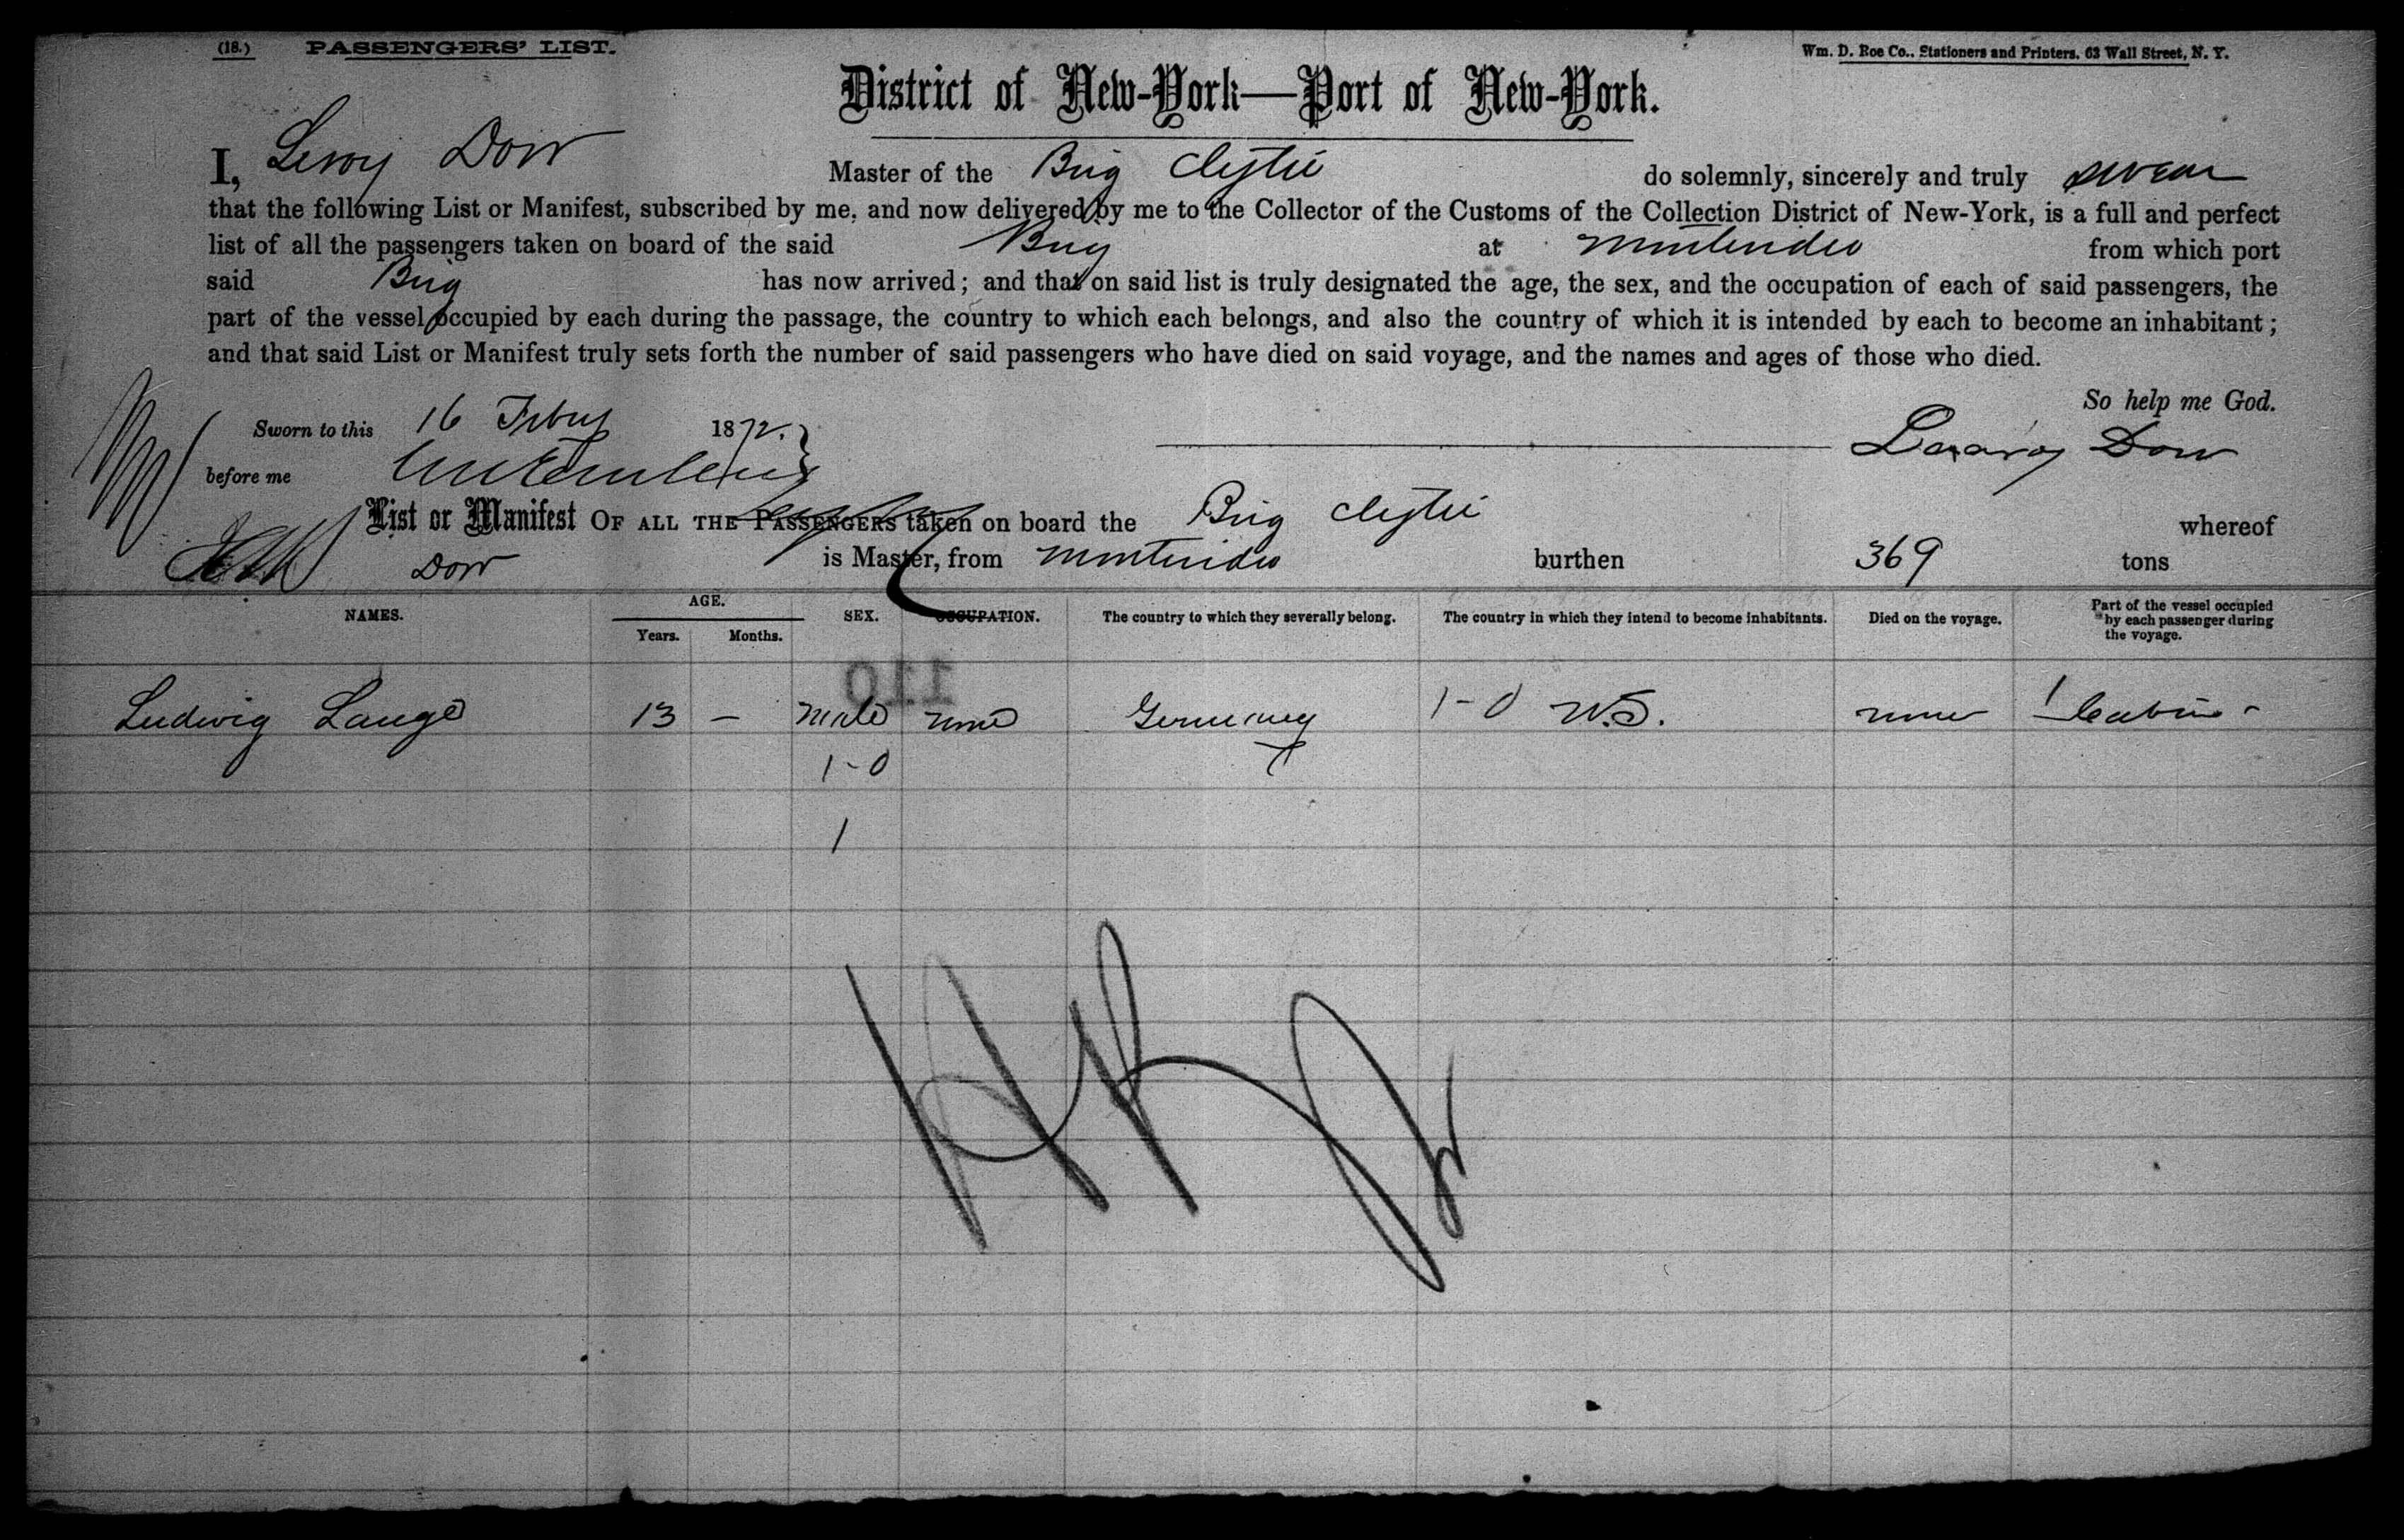 (18.) PASSENGERS' LIST.
Wm. D. Roe Co., Stationers and Printers, 63 Wall Street, N. Y.
District of New-York—Port of New-York.
I, Leroy Dow Master of the Brig Clytie do solemnly, sincerely and truly swear
that the following List or Manifest, subscribed by me, and now delivered by me to the Collector of the Customs of the Collection District of New-York, is a full and perfect
list of all the passengers taken on board of the said Brig at Montevideo from which port
said Brig has now arrived; and that on said list is truly designated the age, the sex, and the occupation of each of said passengers, the
part of the vessel occupied by each during the passage, the country to which each belongs, and also the country of which it is intended by each to become an inhabitant;
and that said List or Manifest truly sets forth the number of said passengers who have died on said voyage, and the names and ages of those who died.
So help me God.
Sworn to this 16 Feby 1872.
Dow
before me
List or Manifest OF ALL THE PASSENGERS taken on board the Brig Clytie whereof
Dow is Master, from Montevideo burthen 369 tons
NAMES. AGE. Years. Months. SEX. OCCUPATION. The country to which they severally belong. The country in which they intend to become inhabitants. Died on the voyage. Part of the vessel occupied by each passenger during the voyage.
110
Ludwig Lange 13 – Male none Germany 1-0 U.S. none 1 Cabin -
1-0
1